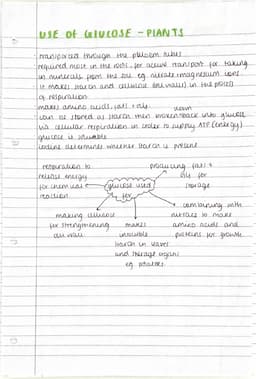 USE OF GLUCOSE - PLANTS
transported through the phloem tubes
required most in the roots, for active transport for taking
in minerals from the soil eg. nitrate/magnesium ions
It makes starch and cellulose (cell walls) in the process
of respiration
makes amino acids, fats + oils
can be stored as starch then broken back into glucose
via cellular respiration in order to supply ATP (energy)
glucose is soluble
iodine determines whether starch is present
respiration to
release energy
for chemical
reaction
producing fats +
oils for
storage
glucose used
for
making cellulose
for strengthening
cell wall
makes
insoluble
starch in leaves
and storage organs
eg. potatoes
combining with
nitrates to make
amino acids and
proteins for growth